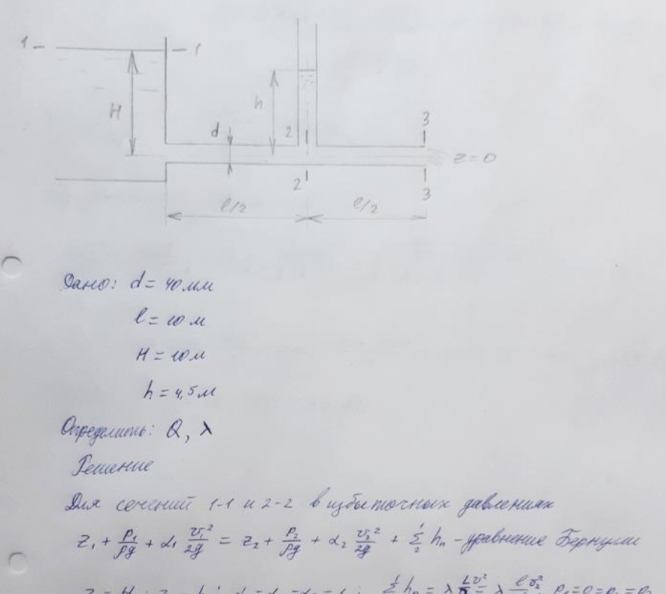 1 1
H h d 2 3
z=0
2 3
l/2 l/2
Дано: d = 40 мм
l = 10 м
H = 10 м
h = 4,5 м
Определить: Q, λ
Решение
Для сечений 1-1 и 2-2 в избыточных давлениях
z₁ + p₁/ρg + α₁ v₁²/2g = z₂ + p₂/ρg + α₂ v₂²/2g + Σ hп - уравнение Бернулли